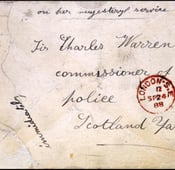 on her majesterys service
Sir Charles Warren
commissioner of
police
Scotland Ya
LONDON.S.E
12
SP24
88